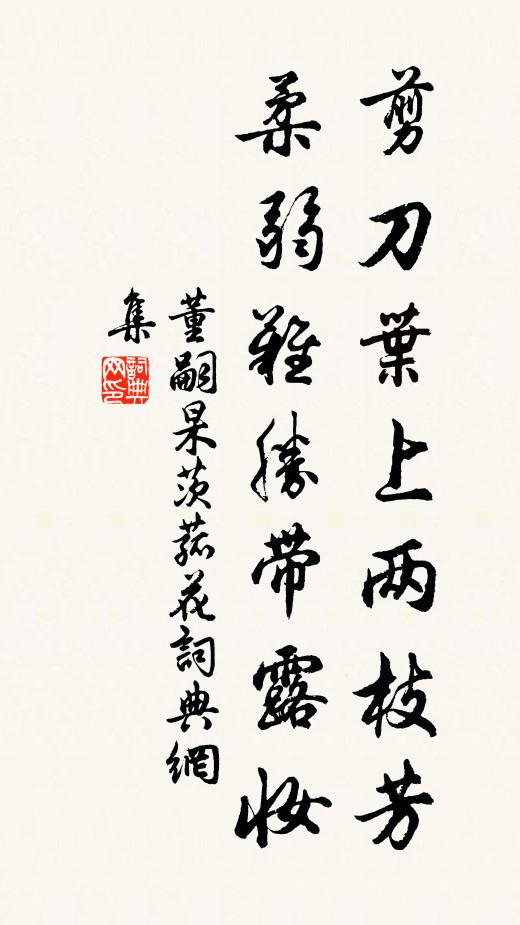 剪刀葉上两枝芳
柔弱難勝帶露妝
董嗣杲茨菰花詞典網
集
詞典网印